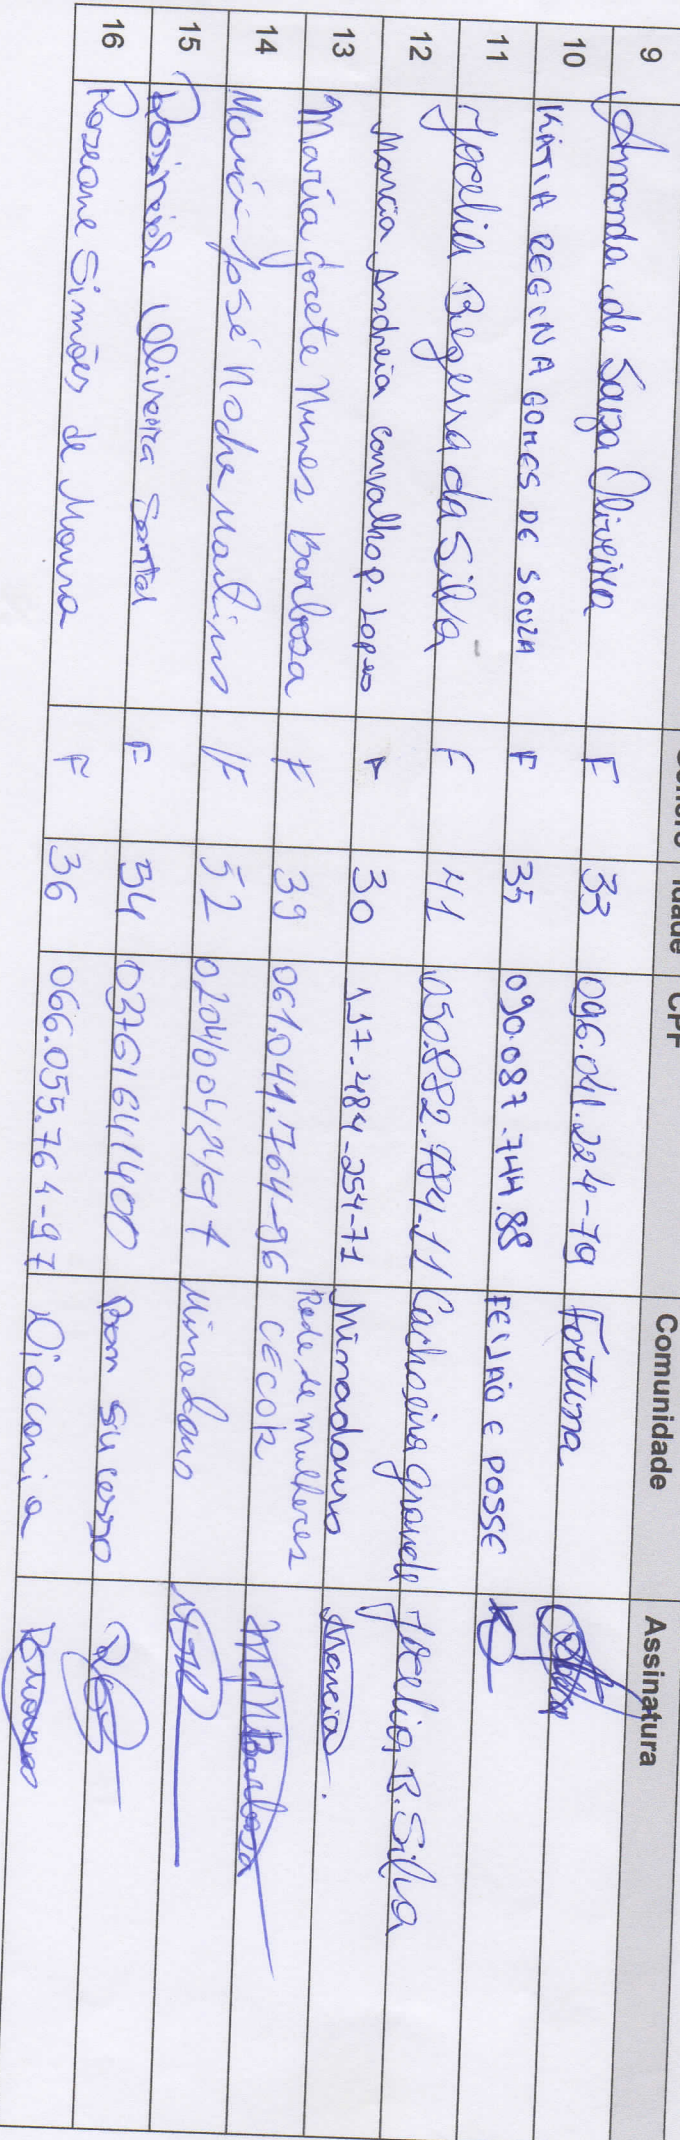 Gênero Idade CPF Comunidade Assinatura
9 Amanda de Souza Oliveira F 33 096.041.224-79 Fortuna
10 KATIA REGINA GOMES DE SOUZA F 35 090.087.744.88 FEIJÃO E POSSE
11 Jocelia Bezerra da Silva F 41 050.882.484-11 Cachoeira Grande Jocelia B. Silva
12 Marcia Andreia Carvalho P. Lopes F 30 117.484-254-71 Minadouro Marcia
13 Maria Gorete Nunes Barbosa F 39 061.041.764-96 Rede de mulheres
CECOR M G N Barbosa
14 Maria José Rocha Martins F 52 Minadouro
15 Oliveira F 54 03761641400 Bom Sucesso
16 Roseane Simões de Moura F 36 066.055.764-97 Diaconia